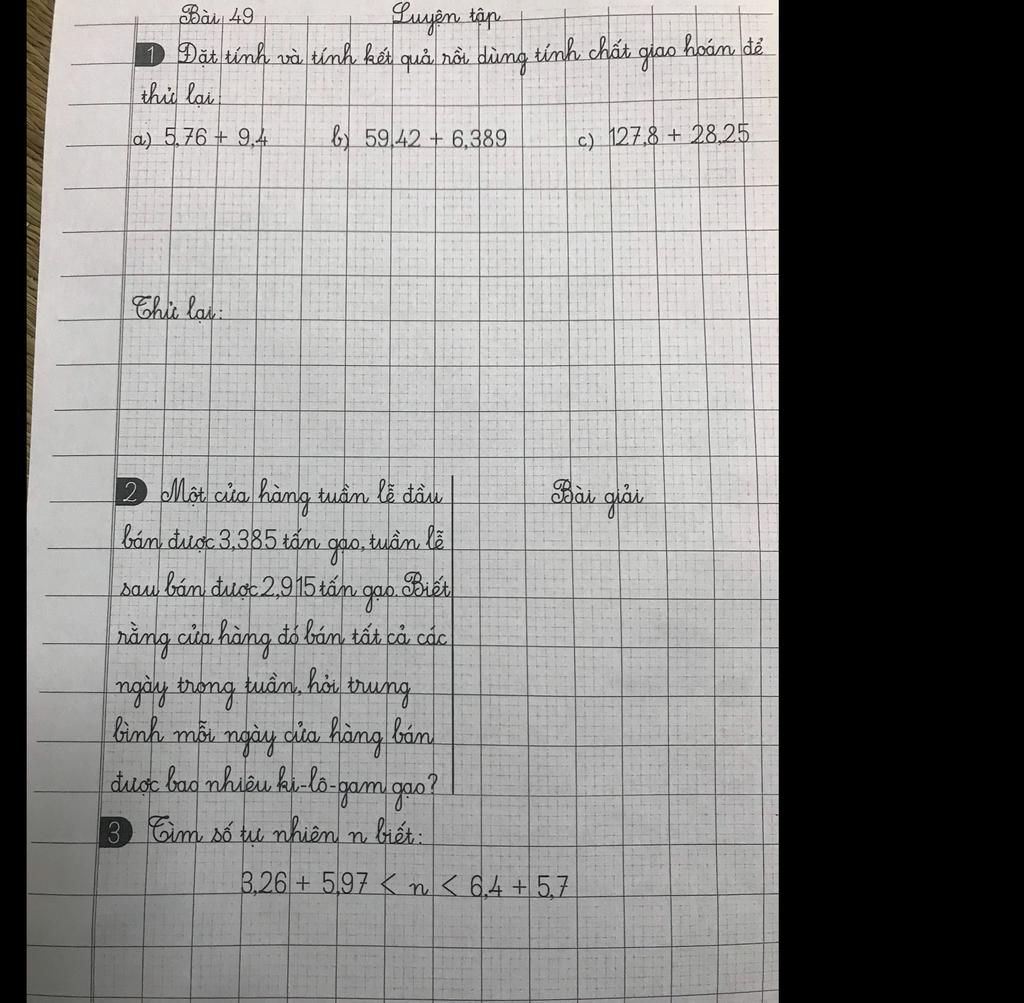 Bài 49 Luyện tập
1 Đặt tính và tính kết quả rồi dùng tính chất giao hoán để
thử lại:
a) 5,76 + 9,4 b) 59,42 + 6,389 c) 127,8 + 28,25
Thử lại:
2 Một cửa hàng tuần lễ đầu
bán được 3,385 tấn gạo, tuần lễ
sau bán được 2,915 tấn gạo. Biết
rằng cửa hàng đó bán tất cả các
ngày trong tuần, hỏi trung
bình mỗi ngày cửa hàng bán
được bao nhiêu ki-lô-gam gạo?
Bài giải
3 Tìm số tự nhiên n biết:
3,26 + 5,97 < n < 6,4 + 5,7